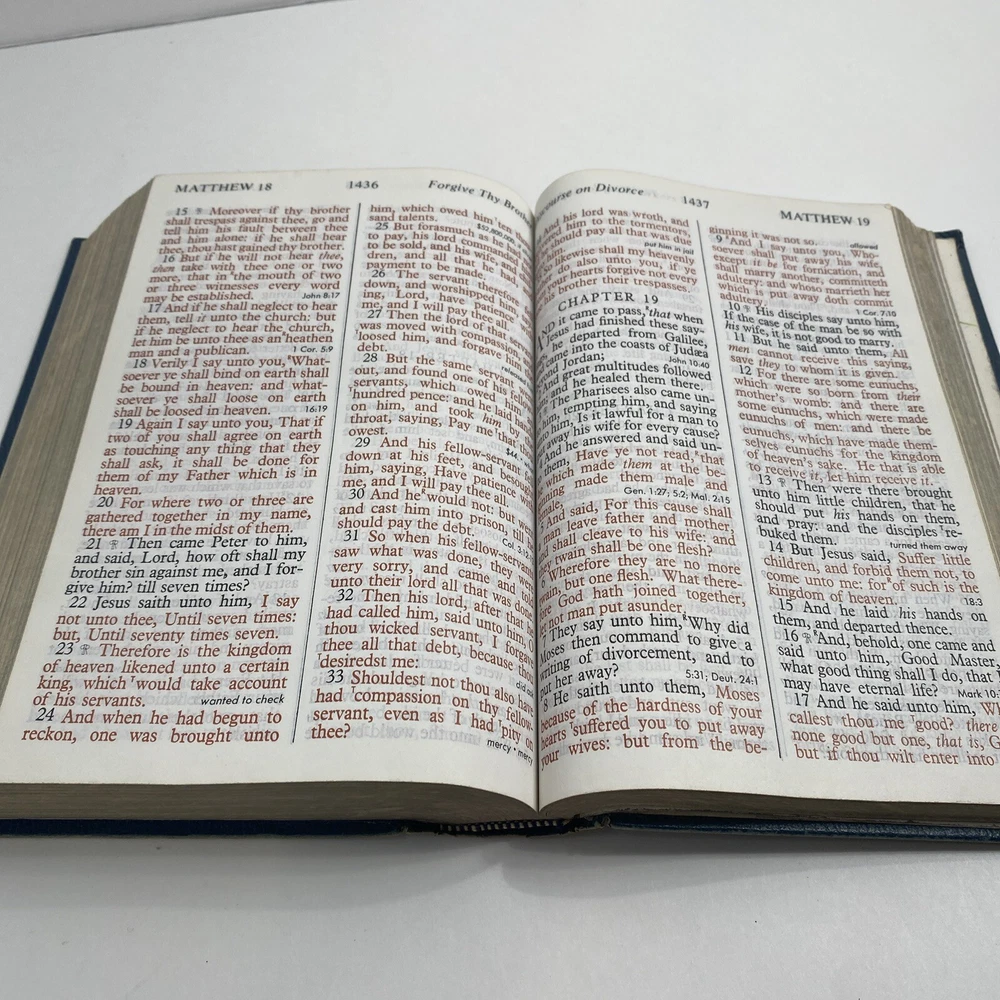 MATTHEW 18
1436
Forgive Thy
15 Moreover if thy brother
shall trespass against thee, go and
tell him his fault between thee
and him alone: if he shall hear
thee, thou hast gained thy brother.
16 But if he will not hear thee,
then take with thee one or two
more, that in the mouth of two
or three witnesses every word
may be established. John 8:17
17 And if he shall neglect to hear
them, tell it unto the church: but
if he neglect to hear the church,
let him be unto thee as an heathen
man and a publican. 1 Cor. 5:9
18 Verily I say unto you, What-
soever ye shall bind on earth shall
be bound in heaven: and what-
soever ye shall loose on earth
shall be loosed in heaven. 16:19
19 Again I say unto you, That if
two of you shall agree on earth
as touching any thing that they
shall ask, it shall be done for
them of my Father which is in
heaven.
20 For where two or three are
gathered together in my name,
there am I in the midst of them.
21 Then came Peter to him,
and said, Lord, how oft shall my
brother sin against me, and I for-
give him? till seven times?
22 Jesus saith unto him, I say
not unto thee, Until seven times:
but, Until seventy times seven.
23 Therefore is the kingdom
of heaven likened unto a certain
king, which would take account
of his servants. wanted to check
24 And when he had begun to
reckon, one was brought unto
him, which owed him ten
sand talents. $52,800,000
25 But forasmuch as he had
to pay, his lord commanded
to be sold, and his wife, and
dren, and all that he had,
payment to be made.
26 The servant therefore
down, and worshipped him,
ing, Lord, have patience
me, and I will pay thee all.
27 Then the lord of that
was moved with compassion, and
loosed him, and forgave him
debt.
28 But the same servant
out, and found one of his fellow
servants, which owed him
hundred pence: and he laid
on him, and took him by
throat, saying, Pay me that
owest. $44
29 And his fellow-servant
down at his feet, and besought
him, saying, Have patience with
me, and I will pay thee all.
30 And he would not: but went
and cast him into prison, till he
should pay the debt. Col. 3:12
31 So when his fellow-servants
saw what was done, they were
very sorry, and came and told
unto their lord all that was done.
32 Then his lord, after that he
had called him, said unto him, O
thou wicked servant, I forgave
thee all that debt, because thou
desiredst me: did not
33 Shouldest not thou also have
had compassion on thy fellow
servant, even as I had pity on
thee? mercy • mercy
course on Divorce
1437
MATTHEW 19
And his lord was wroth, and
him to the tormentors,
should pay all that was due
put him in jail
likewise shall my heavenly
do also unto you, if ye
your hearts forgive not every
his brother their trespasses.
CHAPTER 19
AND it came to pass, that when
Jesus had finished these say-
he departed from Galilee,
came into the coasts of Judæa
Jordan; John 10:40
And great multitudes followed
and he healed them there.
The Pharisees also came un-
him, tempting him, and saying
unto him, Is it lawful for a man to
away his wife for every cause?
And he answered and said un-
them, Have ye not read, that
which made them at the be-
ginning made them male and
female, Gen. 1:27; 5:2; Mal. 2:15
And said, For this cause shall
man leave father and mother,
and shall cleave to his wife: and
twain shall be one flesh?
6 Wherefore they are no more
twain, but one flesh. What there-
fore God hath joined together,
let not man put asunder.
They say unto him, Why did
Moses then command to give a
writing of divorcement, and to
put her away? 5:31; Deut. 24:1
8 He saith unto them, Moses
because of the hardness of your
hearts suffered you to put away
your wives: but from the be-
ginning it was not so. allowed
9 And I say unto you, Who-
soever shall put away his wife,
except it be for fornication, and
shall marry another, committeth
adultery: and whoso marrieth her
which is put away doth commit
adultery. 1 Cor. 7:10
10 His disciples say unto him,
If the case of the man be so with
his wife, it is not good to marry.
11 But he said unto them, All
men cannot receive this saying,
save they to whom it is given.
12 For there are some eunuchs,
which were so born from their
mother's womb: and there are
some eunuchs, which were made
eunuchs of men: and there be
eunuchs, which have made them-
selves eunuchs for the kingdom
of heaven's sake. He that is able
to receive it, let him receive it.
13 Then were there brought
unto him little children, that he
should put his hands on them,
and pray: and the disciples re-
buked them. turned them away
14 But Jesus said, Suffer little
children, and forbid them not, to
come unto me: for of such is the
kingdom of heaven. 18:3
15 And he laid his hands on
them, and departed thence.
16 And, behold, one came and
said unto him, Good Master,
what good thing shall I do, that I
may have eternal life? Mark 10:
17 And he said unto him, Why
callest thou me good? there
none good but one, that is, G
but if thou wilt enter into